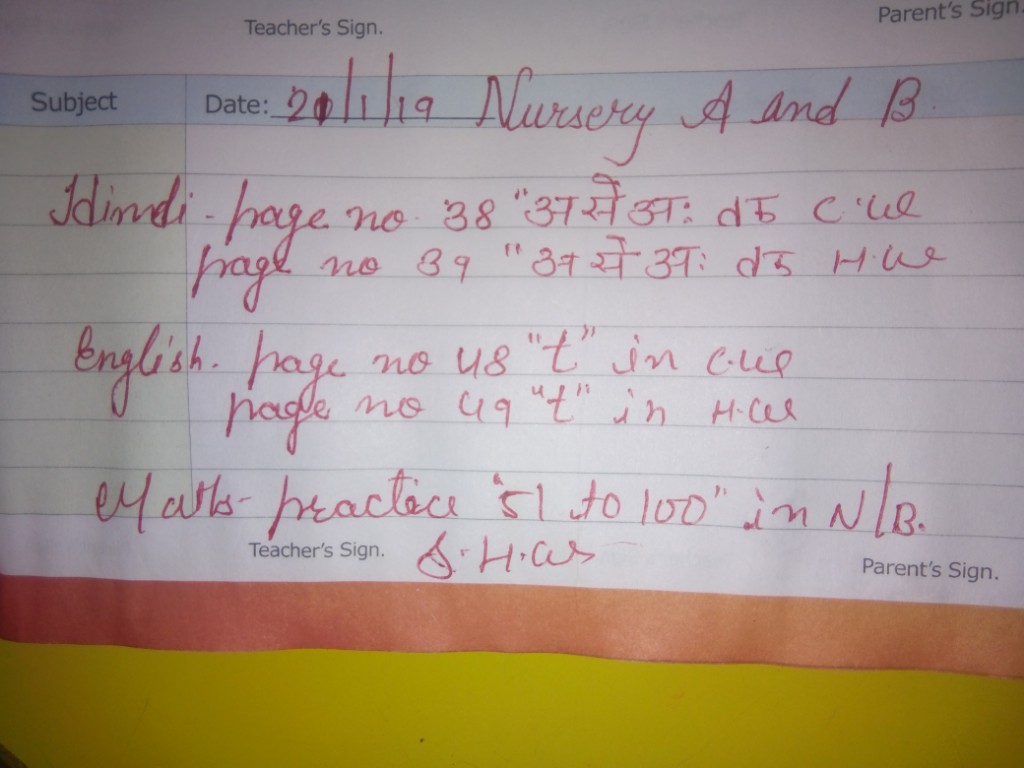 Teacher's Sign. Parent's Sign.
Subject Date: 21/1/19 Nursery A and B
Hindi - page no. 38 "अ से अः तक C.W
page no 39 "अ से अः तक H.W
English. page no 48 "t" in C.W
page no 49 "t" in H.W
Maths - practice "51 to 100" in N/B.
Teacher's Sign. & H.W Parent's Sign.